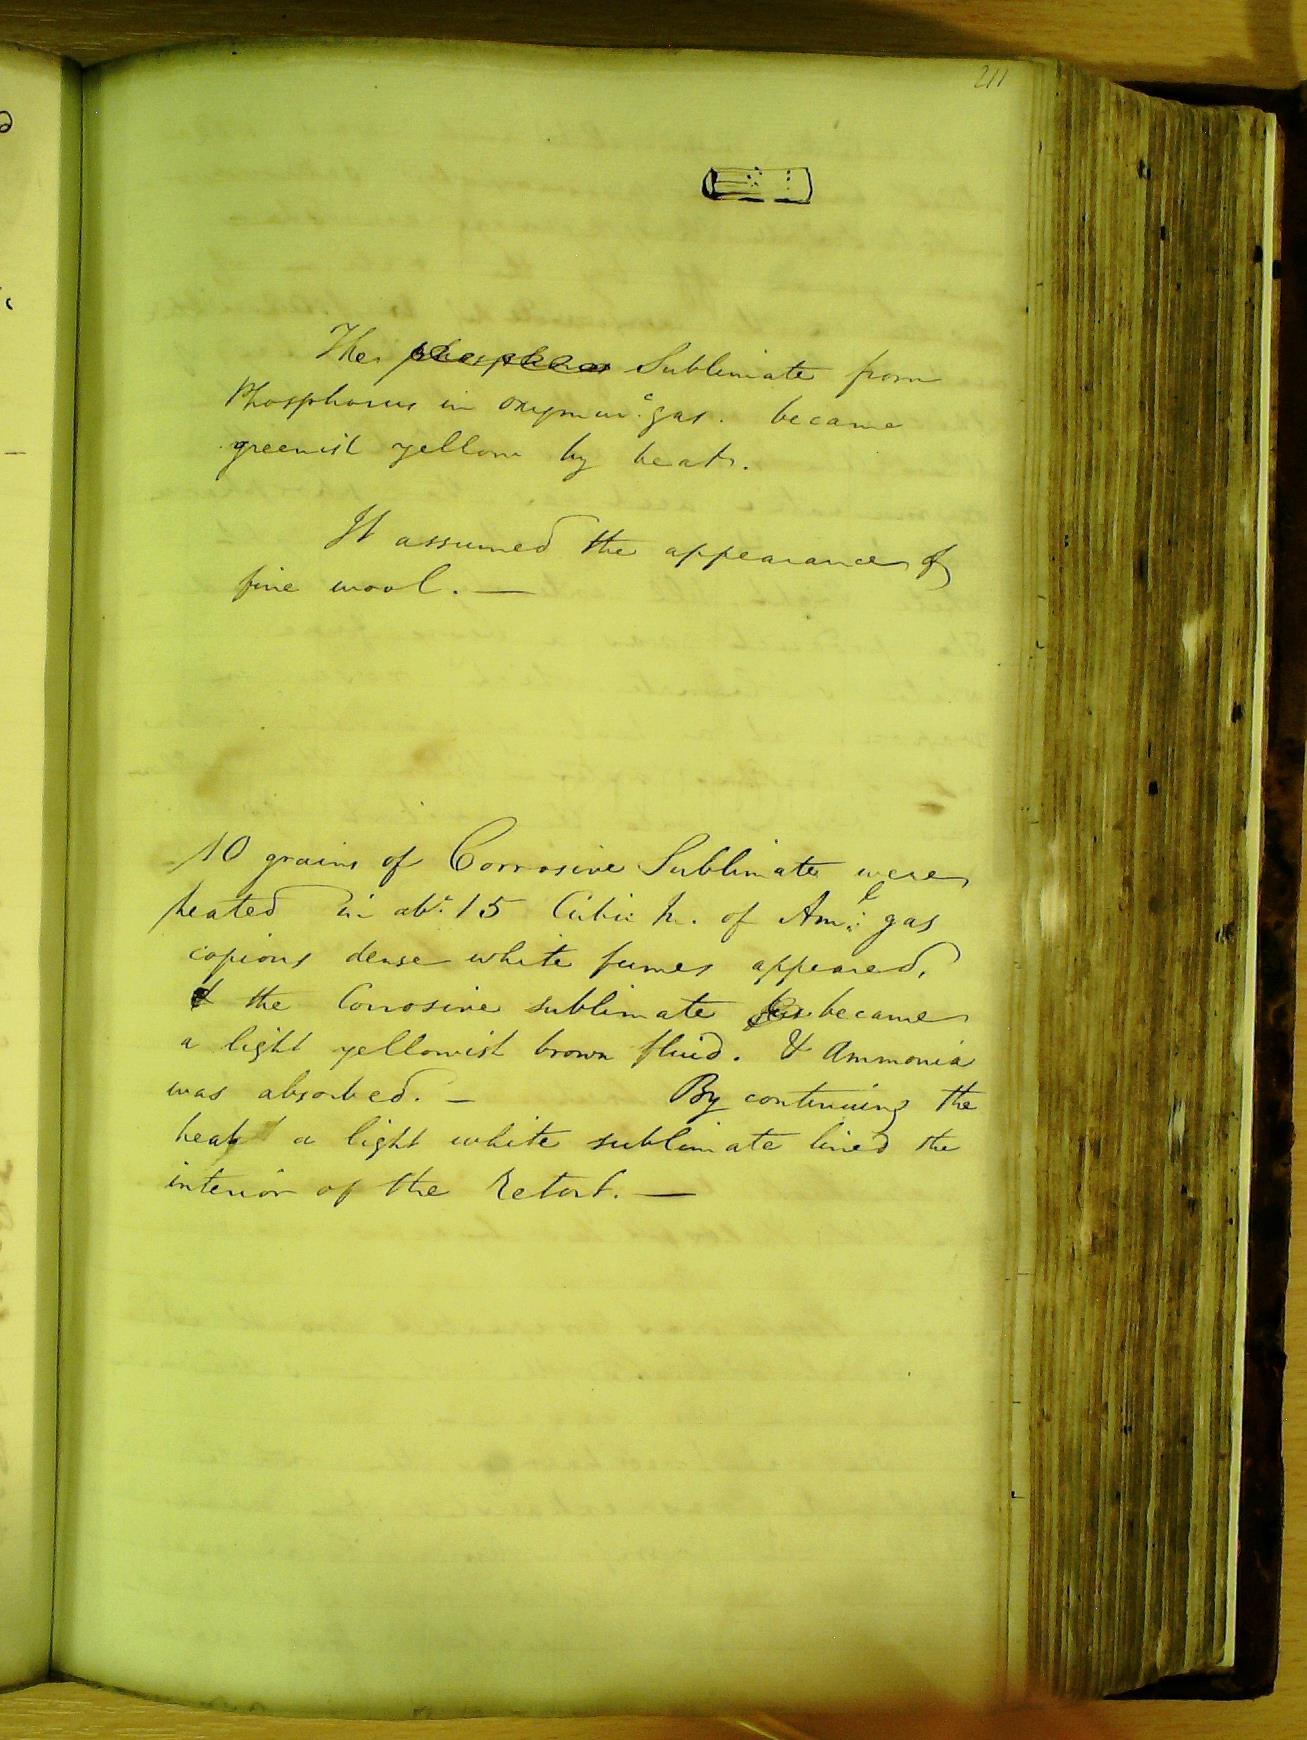 211
The phosphorus Sublimate from
Phosphorus in oxymur.c gas. became
greenish yellow by heat.
It assumed the appearance of
fine wool. —
10 grains of Corrosive Sublimate were
heated in abt. 15 Cubic In. of Aml. gas
copious dense white fumes appeared,
& the Corrosive sublimate became
a light yellowish brown fluid. & Ammonia
was absorbed. — By continuing the
heat a light white sublimate lined the
interior of the Retort. —